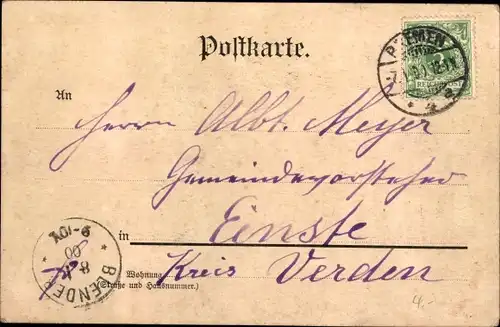 Postkarte.
BREMEN
An
Herrn Albt. Meyer
Gemeindevorsteher
in Einste
Wohnung Kreis Verden
(Straße und Hausnummer.)
BLENDER
9-10V.
00
4.-